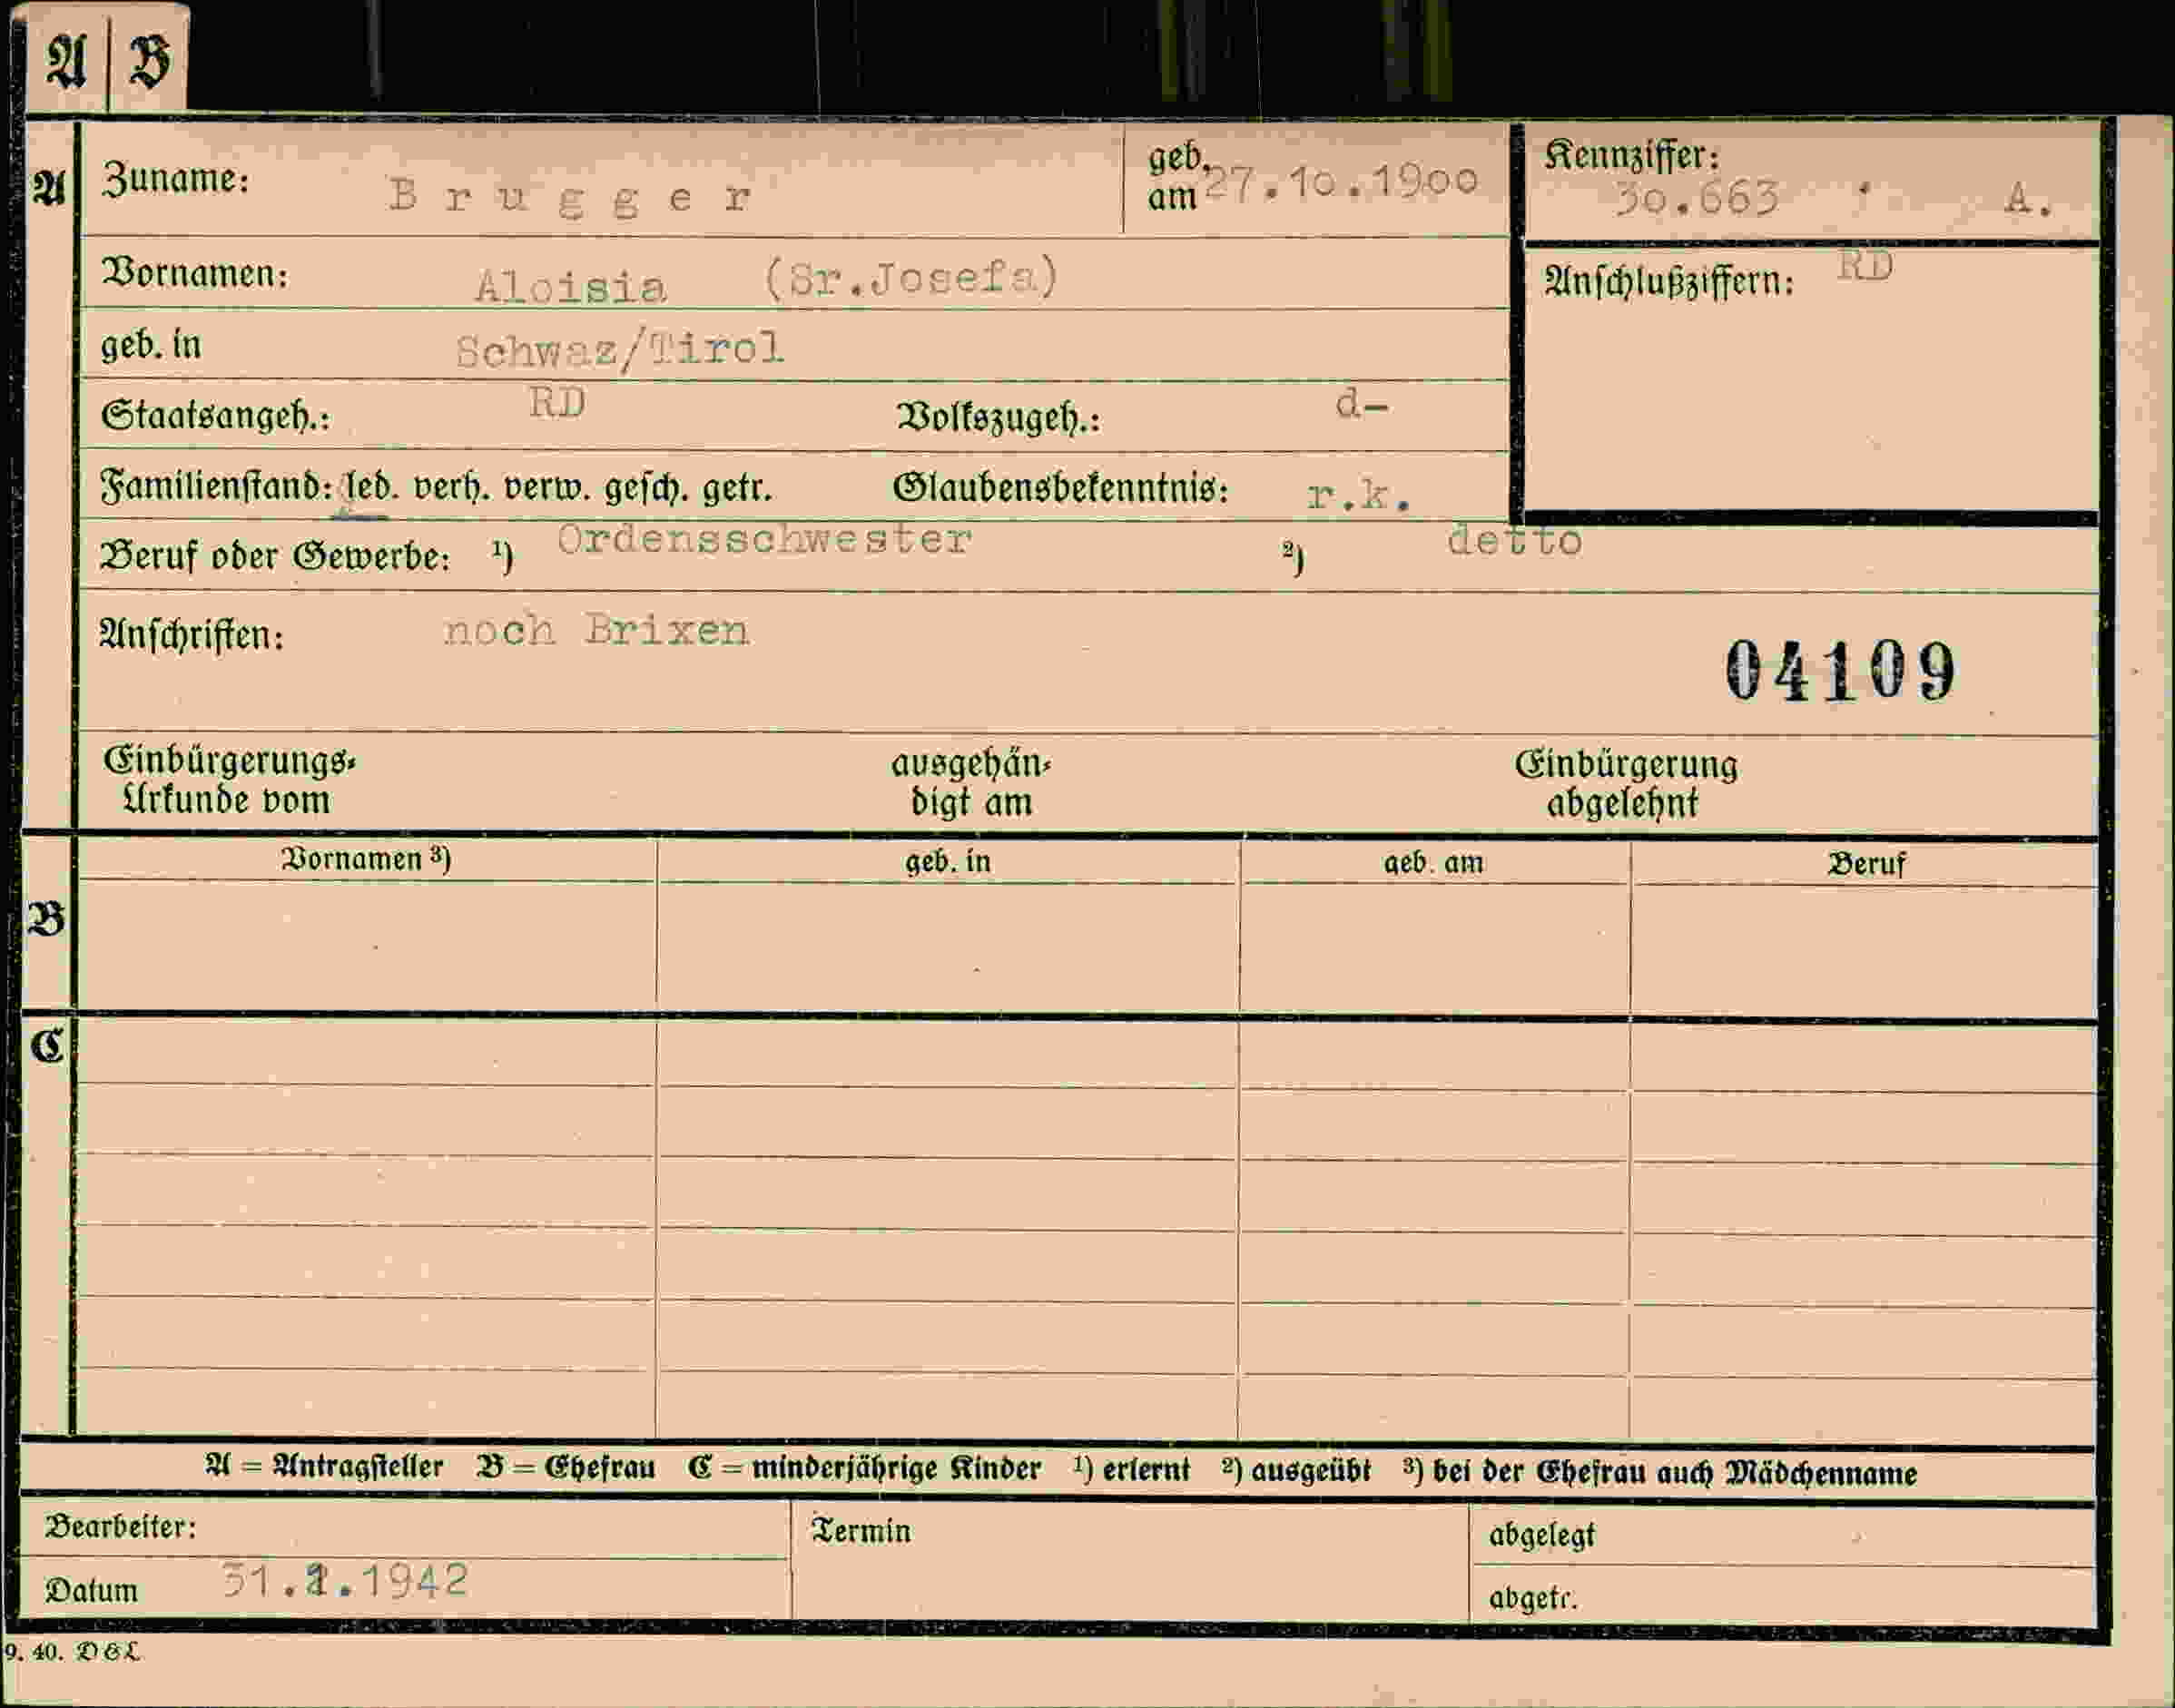 A B
A Zuname: Brugger geb. am 27.10.1900 Kennziffer: 30.663 A.
Vornamen: Aloisia (Sr.Josefa) Anschlußziffern: RD
geb. in Schwaz/Tirol
Staatsangeh.: RD Volkszugeh.: d-
Familienstand: led. verh. verw. gesch. getr. Glaubensbekenntnis: r.k.
Beruf oder Gewerbe: 1) Ordensschwester 2) detto
Anschriften: noch Brixen
04109
Einbürgerungs- ausgehän- Einbürgerung
Urkunde vom digt am abgelehnt
Vornamen 3) geb. in geb. am Beruf
B
C
A = Antragsteller B = Ehefrau C = minderjährige Kinder 1) erlernt 2) ausgeübt 3) bei der Ehefrau auch Mädchenname
Bearbeiter: Termin abgelegt
Datum 31.1942 abgetr.
9. 40. DGL